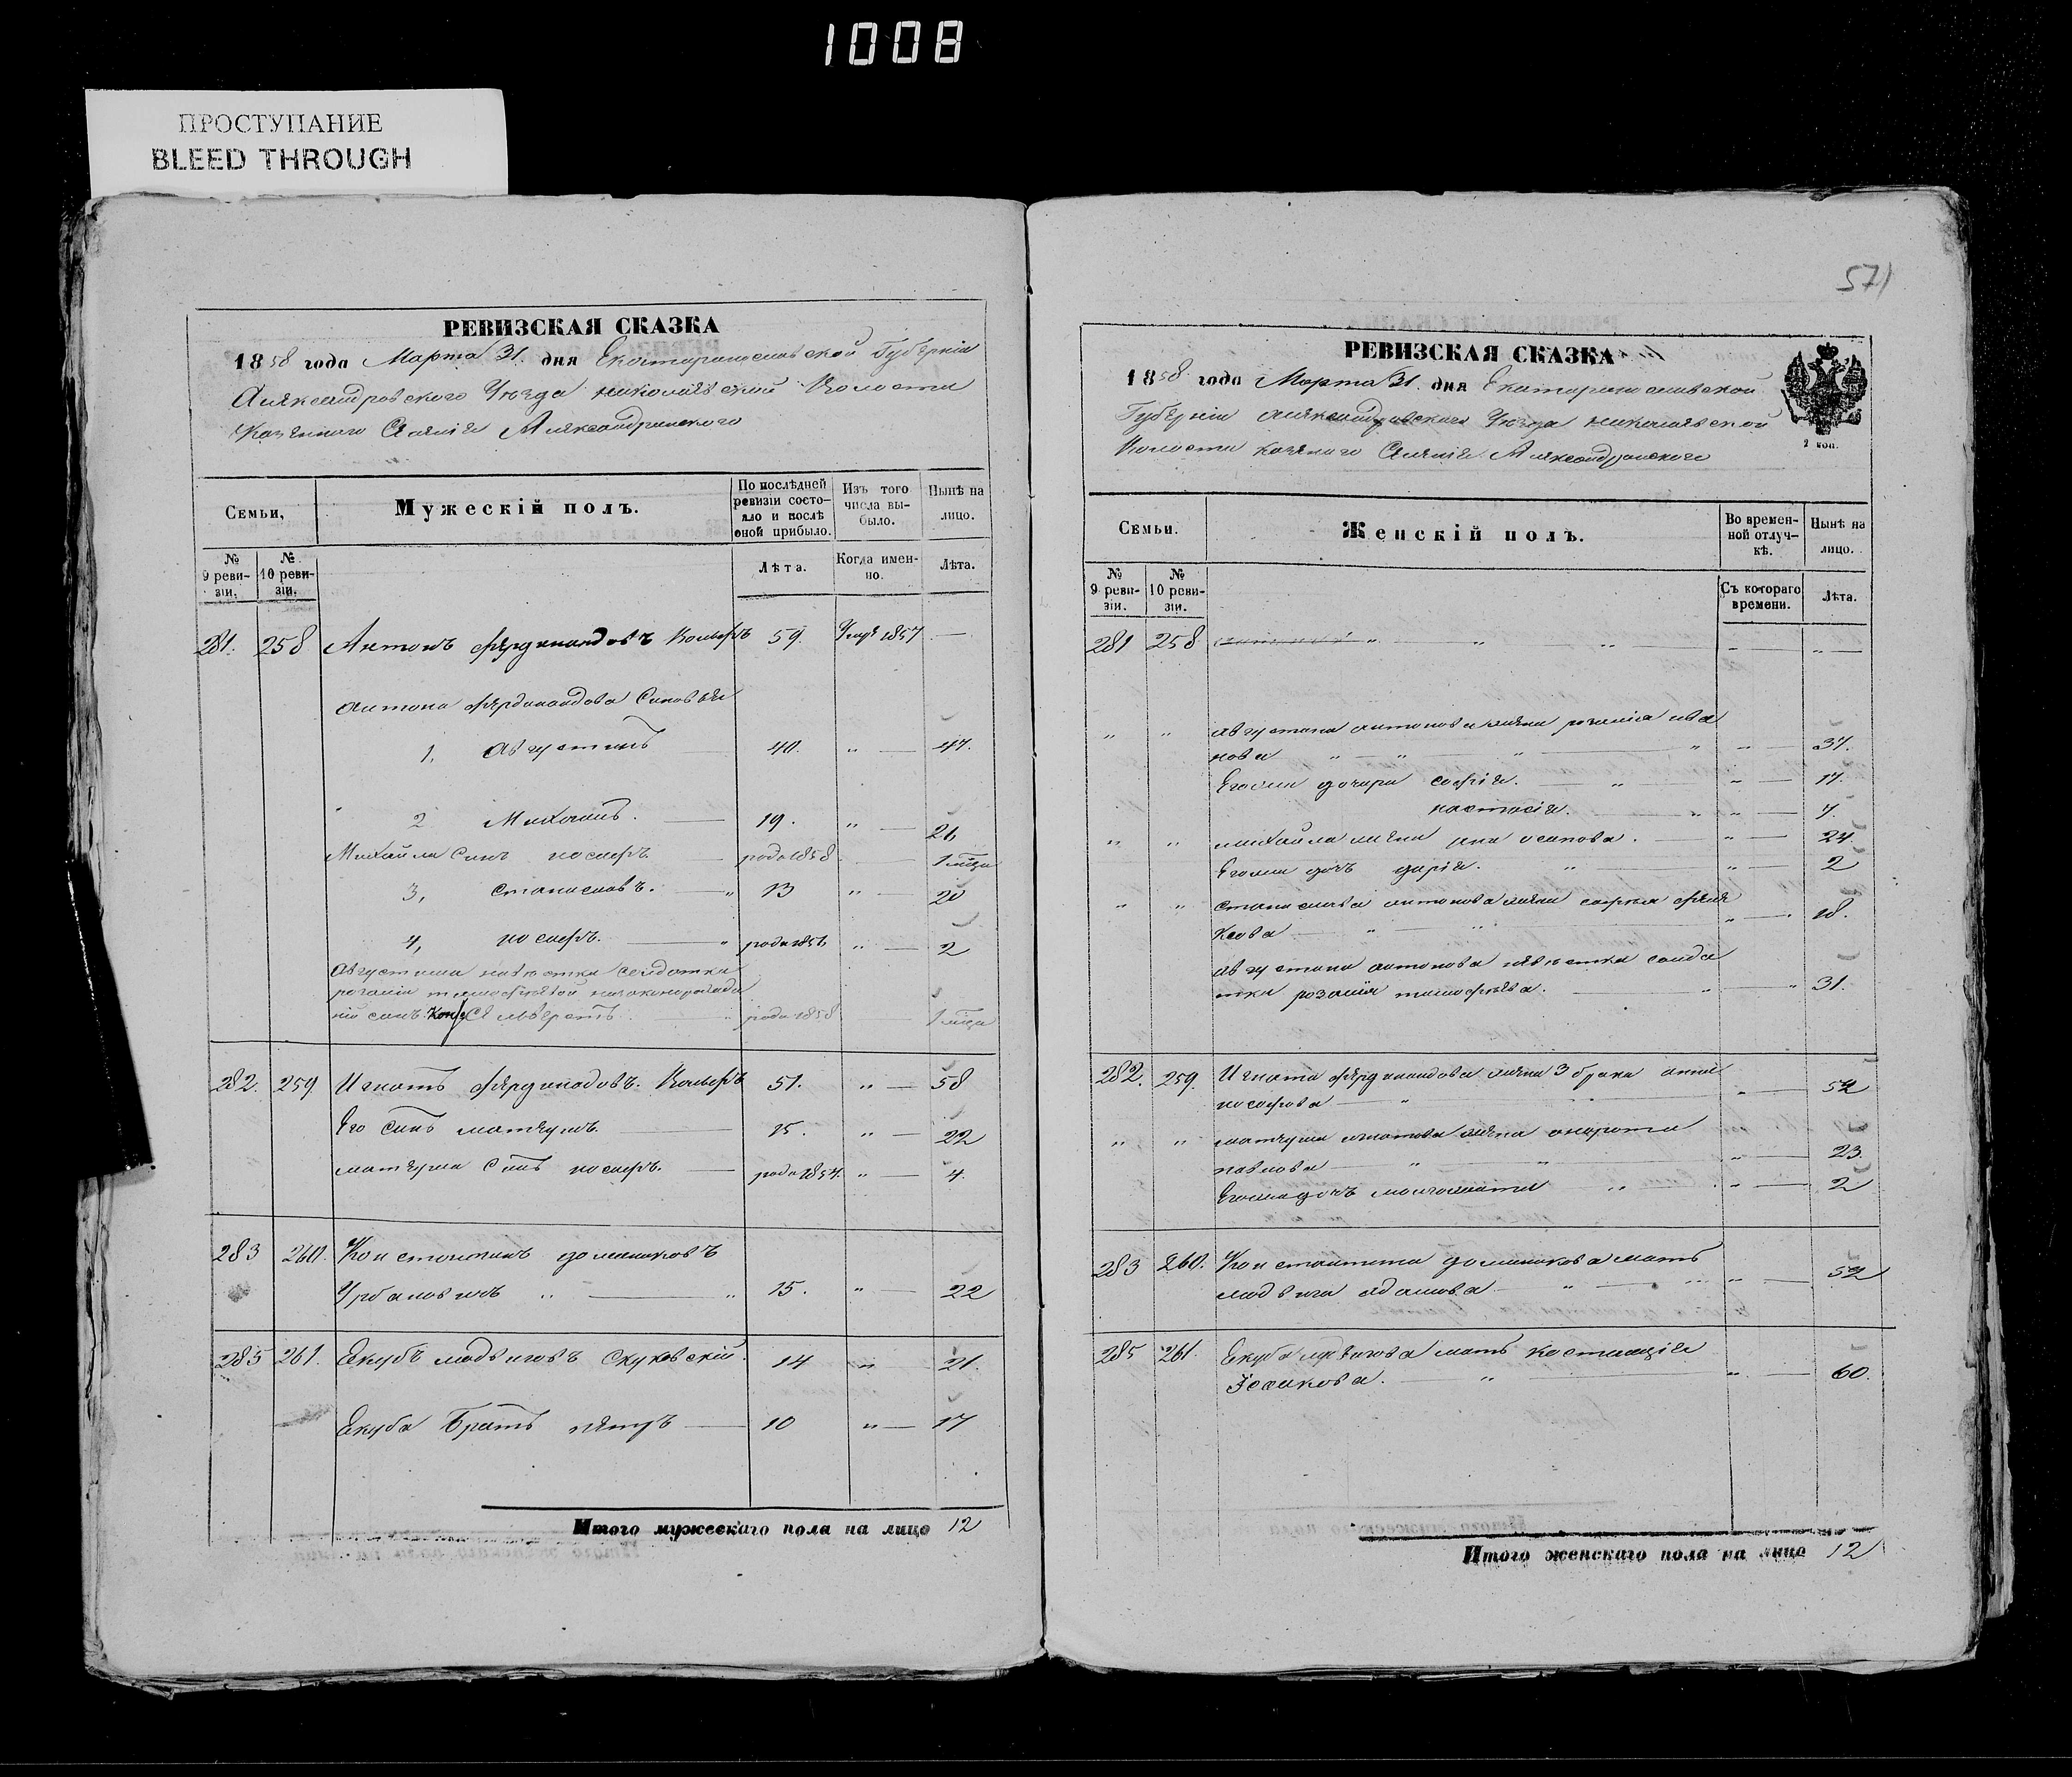 1008
ПРОСТУПАНИЕ
BLEED THROUGH
РЕВИЗСКАЯ СКАЗКА
1858 года Марта 31. дня Екатеринославской Губерніи
Александровского Уезда Николаевской Волости
Казенного Селенія Александринского
Семьи,
Мужескій полъ.
По послѣдней ревизіи состояло и послѣ оной прибыло.
Изъ того числа выбыло.
Нынѣ на лицо.
№ 9 ревизіи.
№ 10 ревизіи.
Лѣта.
Когда именно.
Лѣта.
281. 258 Антонъ Фердинандовъ 59. 1857 —
Антона Фердинандова Сыновья
1, Августинъ — 40. „ — 47.
2 Михаилъ. — 19. „ — 26
Михайла Сынъ Иосифъ — рода 1858 — 1 мца
3, Станиславъ. — „ 13 „ — 20
4, Иосифъ. — „ рода 1856 „ — 2
Августина невестка Солдатка
розалія тимофеевой незаконорожде
ній сынъ — рода 1858 1 мца
282. 259 Игнатъ Фердинадовъ. 51. „ — 58
Его Сынъ матеушъ. — 15. „ — 22
матеуша Сынъ иосифъ. — рода 1854. „ — 4.
283 260. Константинъ доминиковъ
Урбановичъ „ — „ 15. „ — 22
285 261. Екубъ людвиговъ Скуковскій. 14 „ 21.
Екуба Братъ петръ — 10 „ — 17
Итого мужескаго пола на лицо 12
571
РЕВИЗСКАЯ СКАЗКА
1858. года Марта 31. дня Екатеринославской
Губерніи Александровского Уезда Николаевской
Волости казенного Селенія Александринского
2 коп.
Семьи.
Женскій полъ.
Во временной отлучкѣ.
Нынѣ на лицо.
№ 9 ревизіи.
№ 10 ревизіи.
Съ котораго времени.
Лѣта.
281 258 „ „ „ — „ — „ —
„ „ Августина антонова жена розалія ива
нова „ „ „ „ „ — 37.
Егожи дочери софія. — „ — „ — 17.
настасія. — „ „ — 7.
„ „ михайла жена осипова. — „ — 24.
Егожи дочь дарія. „ — „ — 2
„ „ Станислава антонова жена софья
„ — 18.
Августина антонова невестка солда
тка розалія тимофеева. — „ — „ 31.
282. 259. Игната Фердинандова жена 3 брака анна
иосифова — „ „ — 52
„ „ матеуша игнатова жена
павлова — „ „ „ — 23.
Егожи дочь „ — „ — 2
283 260. Константина доминикова мать
людвига адамова. — „ — „ „ — 52
285 261. Екуба лудвигова мать
— „ — „ — 60.
Итого женскаго пола на лицо 12